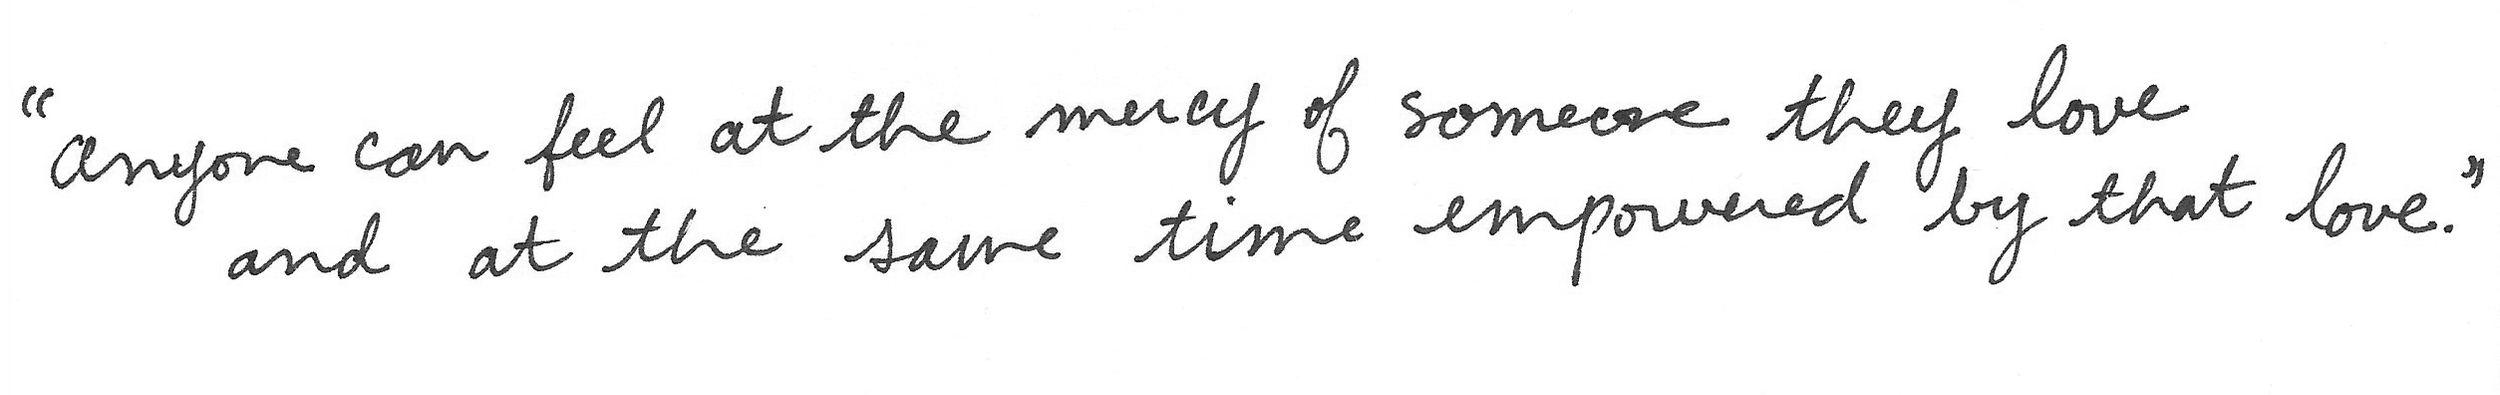 “anyone can feel at the mercy of someone they love
and at the same time empowered by that love.”